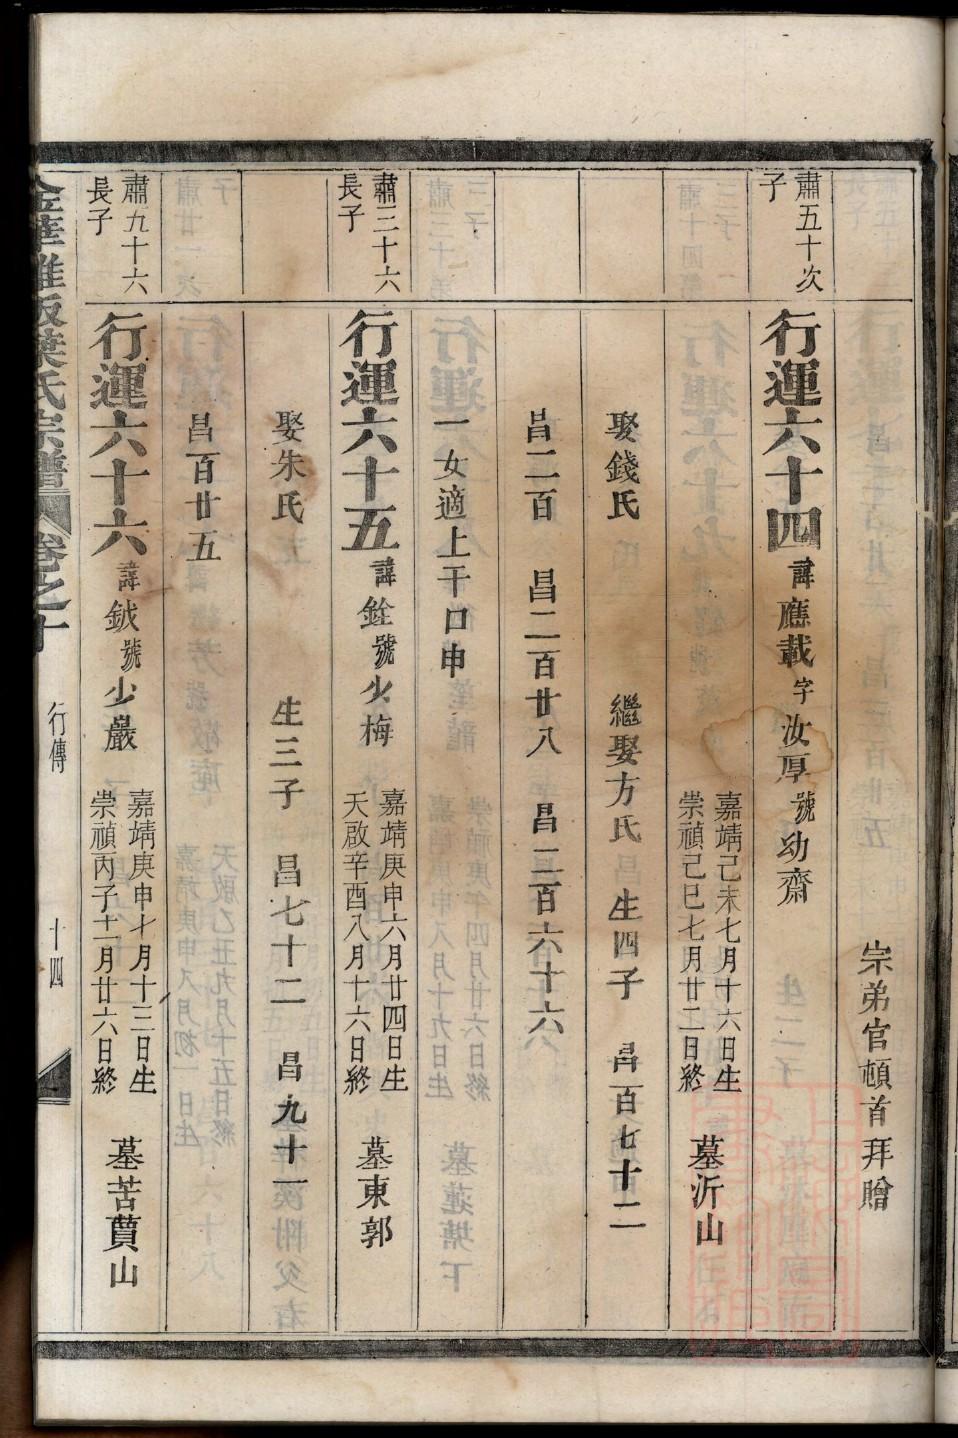 宗弟官頓首拜贈
肅五十次
子
行運六十四 諱應載字汝厚號幼齋
嘉靖己未七月十六日生
崇禎己巳七月廿二日終
墓沂山
娶錢氏 繼娶方氏 生四子 昌百七十二
昌二百 昌二百廿八 昌二百六十六
一女適上干口申
肅三十六
長子
行運六十五 諱銓號少梅
嘉靖庚申六月廿四日生
天啟辛酉八月十六日終
墓東郭
娶朱氏 生三子 昌七十二 昌九十一
昌百廿五
肅九十六
長子
行運六十六 諱鉞號少巖
嘉靖庚申七月十三日生
崇禎丙子十一月廿六日終
墓苦蕒山
金華雅畈葉氏宗譜 卷之十 行傳 十四